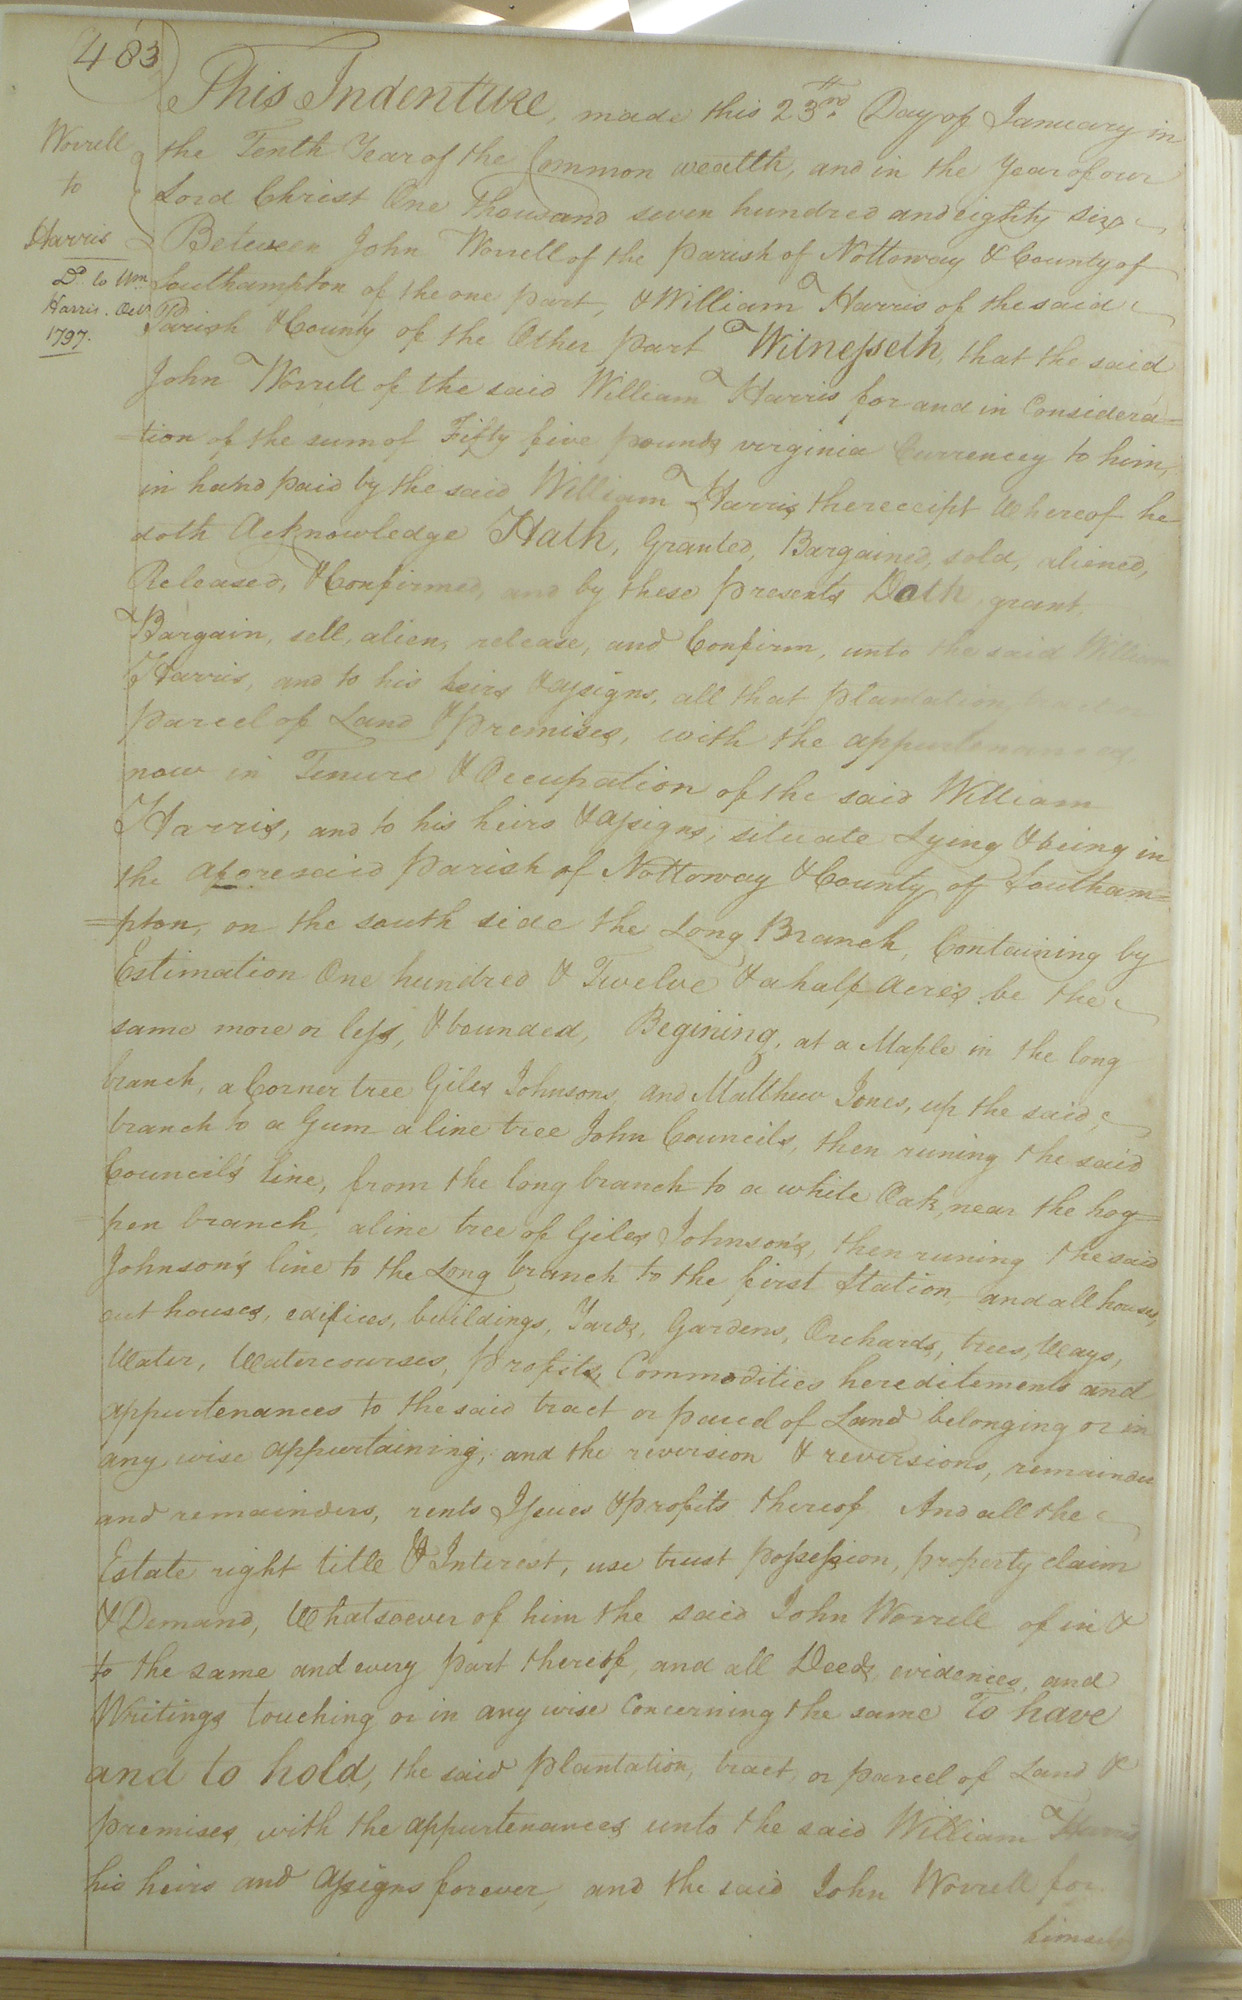 483
Worrell
to
Harris
Dd. to Wm
Harris. Octr
1797.
This Indenture, made this 23nd. Day of January in
the Tenth Year of the Common wealth, and in the Year of our
Lord Christ One Thousand seven hundred and eighty six
Between John Worrell of the parish of Nottoway & County of
Southampton of the one part, & William Harris of the said
Parish & County of the Other part Witnesseth, that the said
John Worrell of the said William Harris for and in Considera=
=tion of the sum of Fifty five pounds virginia Currencey to him,
in hand paid by the said William Harris, the receipt Whereof he
doth Acknowledge Hath, Granted, Bargained, sold, aliened,
Released, & Confirmed, and by these presents Doth, grant,
Bargain, sell, alien, release, and Confirm, unto the said William
Harris, and to his heirs & assigns, all that plantation, tract or
parcel of Land & premises, with the appurtenances,
now in Tenure & Occupation of the said William
Harris, and to his heirs & assigns; situate Lying & being in
the aforesaid parish of Nottoway & County of Southam=
=pton, on the south side the Long Branch, Containing by
Estimation One hundred & Twelve & a half Acres be the
same more or less, & bounded, Begining, at a Maple in the long
branch, a Corner tree Giles Johnsons, and Matthew Jones, up the said,
branch to a Gum a line tree John Councils, then runing the said
Council's line, from the long branch to a white Oak, near the hog=
=pen branch, a line tree of Giles Johnson's, then runing the said
Johnson's line to the Long branch to the first Station, and all houses,
out houses, edifices, buildings, Yards, Gardens, Orchards, trees, Ways,
Water, Watercourses, profits, Commodities hereditements and
appurtenances to the said tract or parcel of Land belonging or in
any wise appurtaining, and the reversion & reversions, remainder
and remainders, rents Issues & profits thereof And all the
Estate right title & Interest, use trust possession, property claim
& Demand, Whatsoever of him the said John Worrell of in &
to the same and every part thereof, and all Deeds, evidences, and
Writings touching or in any wise Concerning the same To have
and to hold, the said plantation, tract, or parcel of Land &
premises, with the appurtenances unto the said William Harris
his heirs and assigns forever, and the said John Worrell for
himself